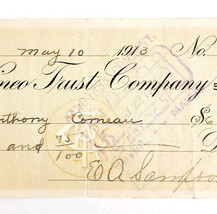 May 10 1913 No.
Trust Company
nthony Comeau $6
and 75/100 D
E A Sampso